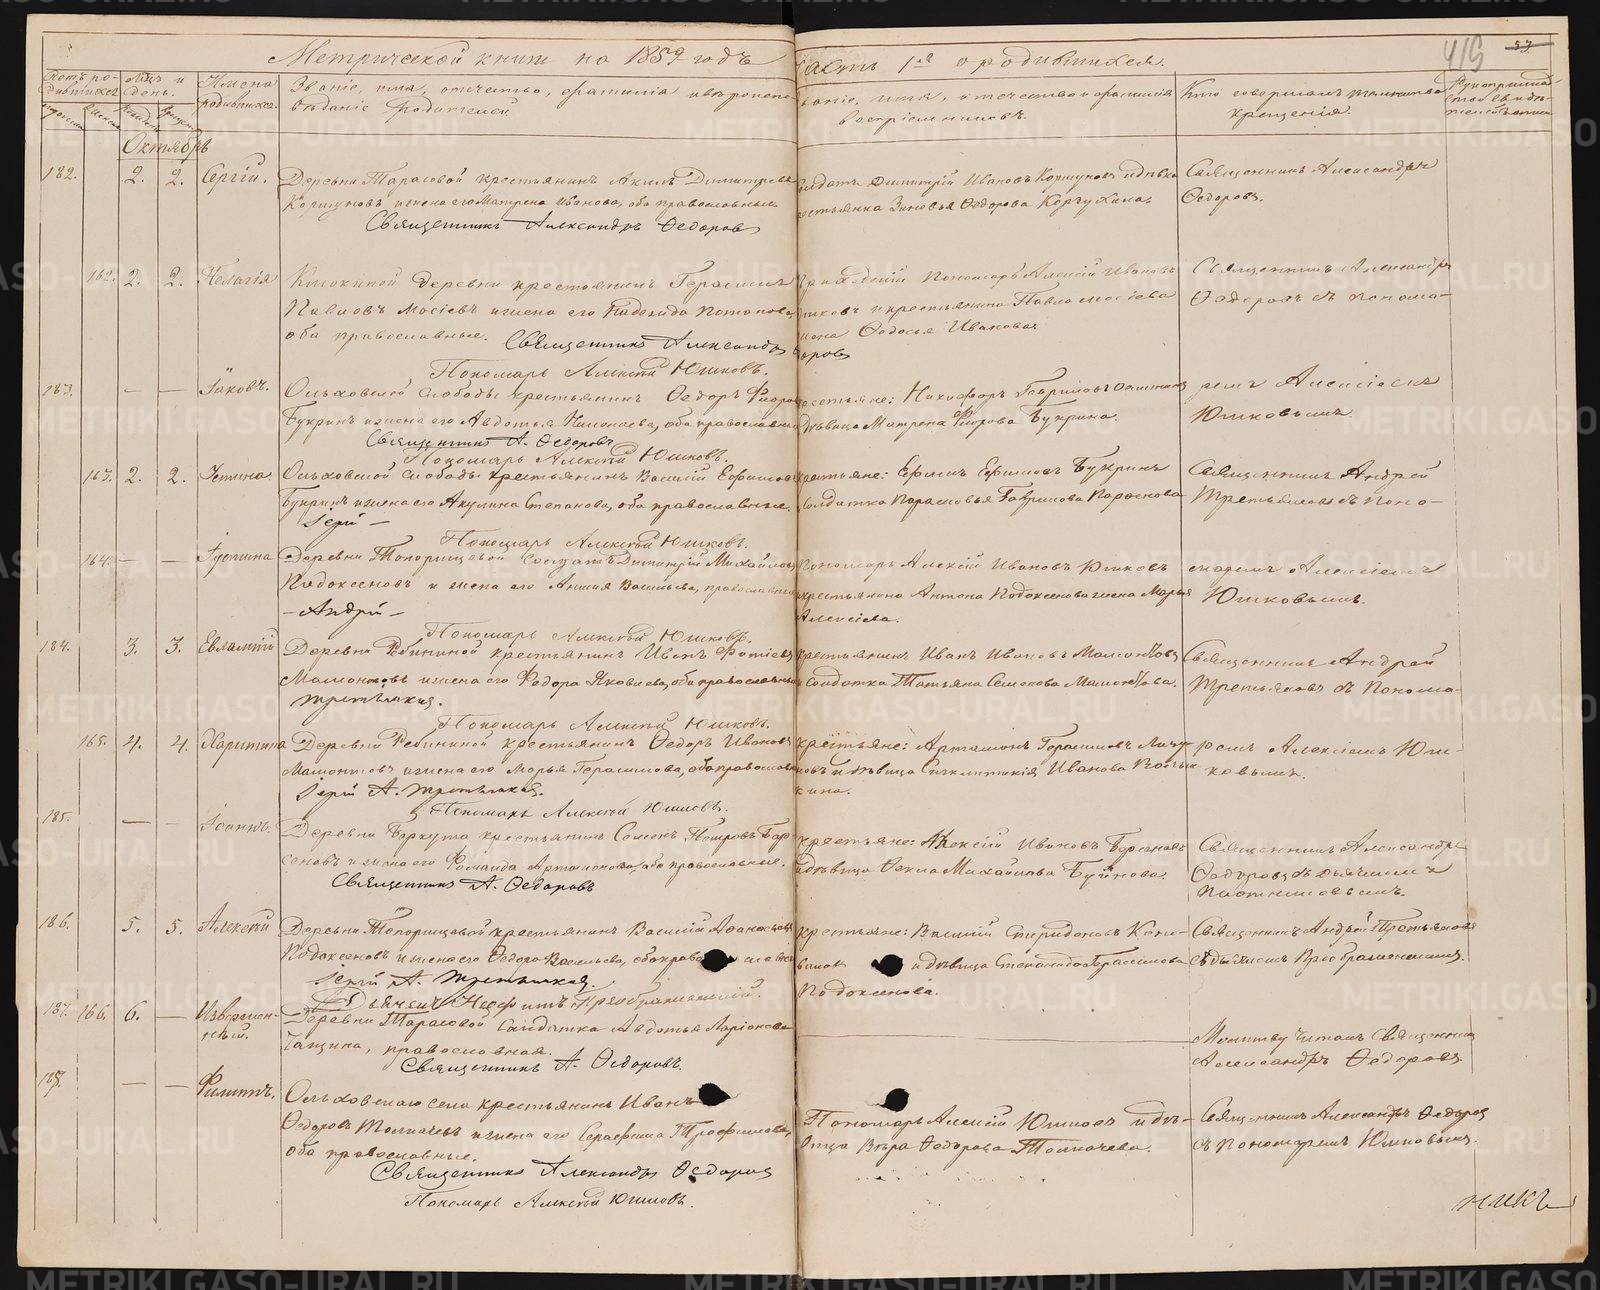 Метрической книги на 1859 годъ
часть 1ая о родившихся.
419 53
Счетъ родившихся
Мѣц и день.
Имена родившихся.
Званіе, имя, отчество, фамилія и вѣроисповѣданіе родителей
Званіе, имя, отечество и фамилія воспріемниковъ.
Кто совершалъ таинство крещенія.
Октябрь
182. 2. 2. Сергій.
Деревни Тарасовой крестьянинъ Акимъ Димитріевъ
Коршуновъ и жена его Матрена Иванова, оба православные
Священникъ Александръ Ѳедоровъ
Солдатъ Димитрій Ивановъ Коршуновъ и дѣвка
крестьянка Зиновья Ѳедорова
Священникъ Александръ
Ѳедоровъ.
162. 2. 2. Пелагія
деревни крестьянинъ Герасимъ
Павловъ Мосіевъ и жена его Надежда Потапова,
оба православные. Священникъ Александръ Ѳедоровъ
Пономарь Алексѣй Юшковъ.
Пономарь Алексій Ивановъ
Юшковъ и крестьянина Павла Мосіева
жена Ѳедосья Иванова
Священникъ Александръ
Ѳедоровъ съ понома-
183. — — Іаковъ.
Ольховской слободы крестьянинъ Ѳедоръ
Букринъ и жена его Авдотья Николаева, оба православные
Священникъ А. Ѳедоровъ
Пономарь Алексѣй Юшковъ.
крестьяне: Никифоръ Гавриловъ
и дѣвица Матрена Букрина.
ремъ Алексіемъ
Юшковымъ.
163. 2. 2. Устина
Ольховской слободы крестьянинъ Василій Ефимовъ
Букринъ и жена его Акулина Степанова, оба православные.
Іерій —
Пономарь Алексѣй Юшковъ.
крестьяне: Ефимъ Ефимовъ Букринъ
солдатка Парасковья Гаврилова
Священникъ Андрей
Третьяковъ съ поно-
164. — — Устина
Деревни Топорищевой солдатъ Димитрій Михайловъ
Подоксеновъ и жена его Анисія Васильева, православные
— Андрей —
Пономарь Алексѣй Юшковъ.
Пономарь Алексій Ивановъ Юшковъ
крестьянина Антона Подоксенова жена Марья
Алексіева.
маремъ Алексіемъ
Юшковымъ.
184. 3. 3. Евлампій
Деревни Рябининой крестьянинъ Иванъ Фотіевъ
Мамонтовъ и жена его Ѳедора Яковлева, оба православные
Третьяковъ.
Пономарь Алексѣй Юшковъ.
крестьянинъ Иванъ Ивановъ Мамонтовъ
и солдатка Татьяна Семенова Мамонтова.
Священникъ Андрей
Третьяковъ съ понома-
165. 4. 4. Харитина
Деревни Рябининой крестьянинъ Ѳедоръ Ивановъ
Мамонтовъ и жена его Марья Герасимова, оба православные
Іерій А. Третьяковъ.
Пономарь Алексѣй Юшковъ.
крестьяне: Артамонъ Герасимовъ
и дѣвица Синклитикія Иванова
кина.
ремъ Алексіемъ Юш-
ковымъ.
185. — — Іоаннъ.
Деревни Беркута крестьянинъ Семенъ Петровъ Бер-
сеновъ и жена его Романида Артамонова, оба православные.
Священникъ А. Ѳедоровъ
крестьяне: Алексій Ивановъ Берсеневъ
и дѣвица Ѳекла Михайлова Буйнова.
Священникъ Александръ
Ѳедоровъ съ дьячкомъ
Плотниковымъ.
186. 5. 5. Алексѣй
Деревни Топорищевой крестьянинъ Василій Аѳанасьевъ
Подоксеновъ и жена его Ѳедора Васильева, оба православные
Іерій А. Третьяковъ.
Дьячекъ Неофитъ Преображенскій.
крестьяне: Василій Спиридоновъ Коно-
валовъ и дѣвица Степанида Герасимова
Подоксенова.
Священникъ Андрей Третьяковъ
съ дьячкомъ Преображенскимъ.
187. 166. 6. — Изверженный.
Деревни Тарасовой солдатка Авдотья Ларіонова
Чащина, православная.
Священникъ А. Ѳедоровъ.
Молитву читалъ Священникъ
Александръ Ѳедоровъ
— — Филиппъ.
Ольховскаго села крестьянинъ Иванъ
Ѳедоровъ Толмачевъ и жена его Серафима Трофимова,
оба православные.
Священникъ Александръ Ѳедоровъ
Пономарь Алексѣй Юшковъ.
Пономарь Алексій Юшковъ и дѣ-
вица Вѣра Ѳедорова Толмачева.
Священникъ Александръ Ѳедоровъ
съ Пономаремъ Юшковымъ.
METRIKI.GASO-URAL.RU